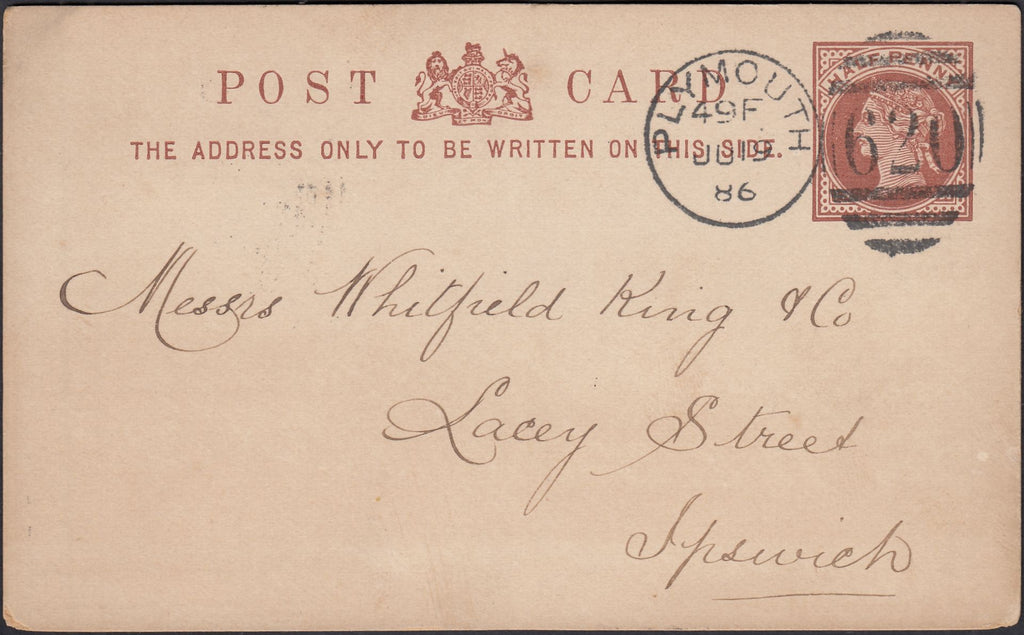 POST CARD
THE ADDRESS ONLY TO BE WRITTEN ON THIS SIDE.
PLYMOUTH
49F
JU 19
86
HALFPENNY
620
Messrs Whitfield King & Co
Lacey Street
Ipswich